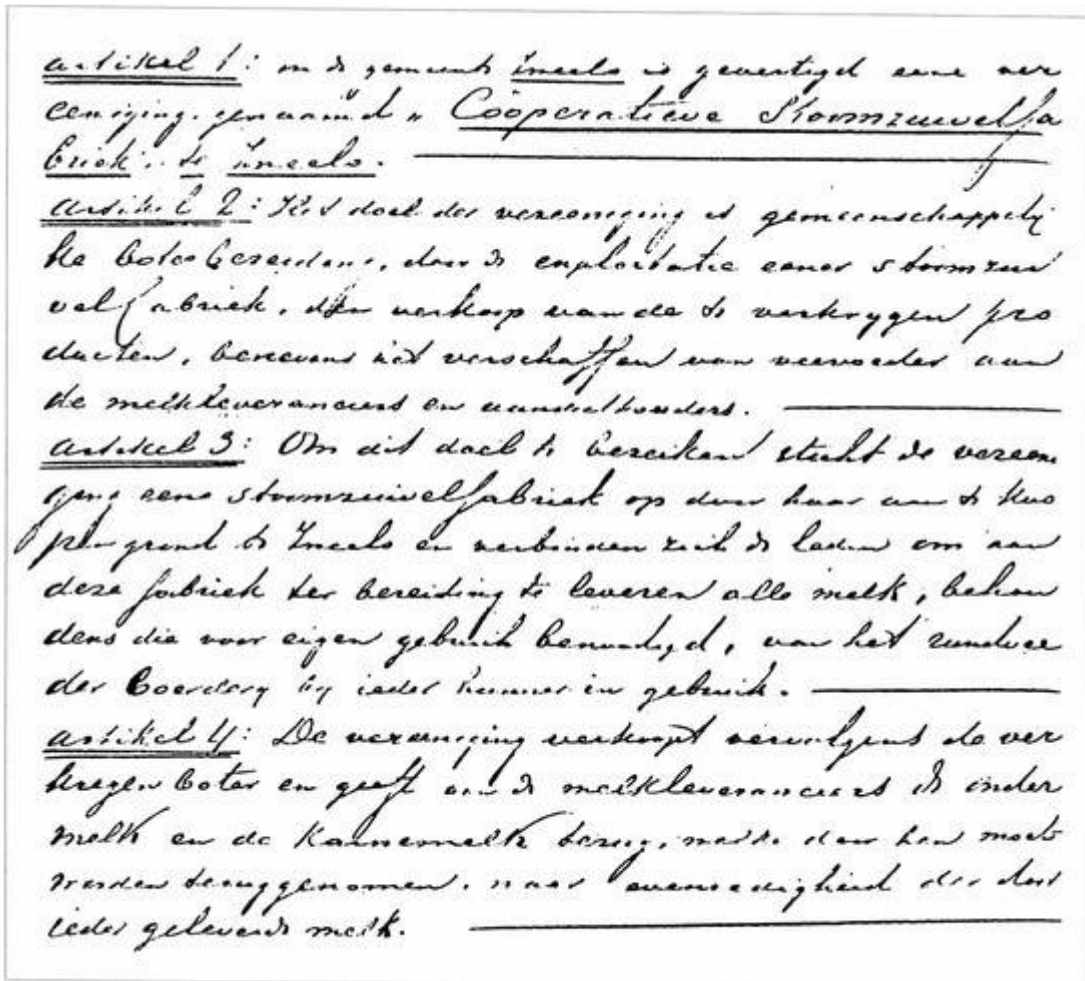 artikel 1: in de gemeente Zneels is gevestigd eene ver
eeniging, genaamd „ Coöperatieve Stoomzuivelfa
briek". te Zneels.
artikel 2: Het doel der vereeniging is gemeenschappelij
ke boterbereiding, door de exploitatie eener stoomzui
velfabriek, den verkoop van de te verkrygen pro
ducten, benevens het verschaffen van veevoeder aan
de melkleveranciers en aandeelhouders.
artikel 3: Om dit doel te bereiken sticht de vereeni
ging eene stoomzuivelfabriek op door haar aan te koo
pen grond te Zneels en verbinden zich de leden om aan
deze fabriek ter bereiding te leveren alle melk, behou
dens die voor eigen gebruik benoodigd, van het rundvee
der boerdery by ieder hunner in gebruik.
artikel 4: De vereeniging verkoopt vervolgens de ver
kregen boter en geeft aan de melkleveranciers de onder
melk en de karnemelk terug, welke door hen moet
worden teruggenomen, naar evenredigheid der door
ieder geleverde melk.